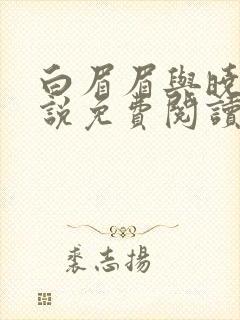 白眉眉與曉
説免費閱讀
裘志揚